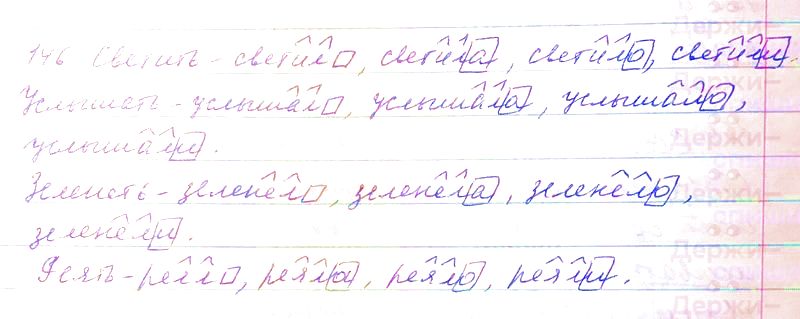 146 Светить - светил, светила, светило, светили.
Услышать - услышал, услышала, услышало,
услышали.
Зеленеть - зеленел, зеленела, зеленело,
зеленели.
Реять - реял, реяла, реяло, реяли.
Держи-
Держи-
Держи-
Держи-
Держи-
Держи-